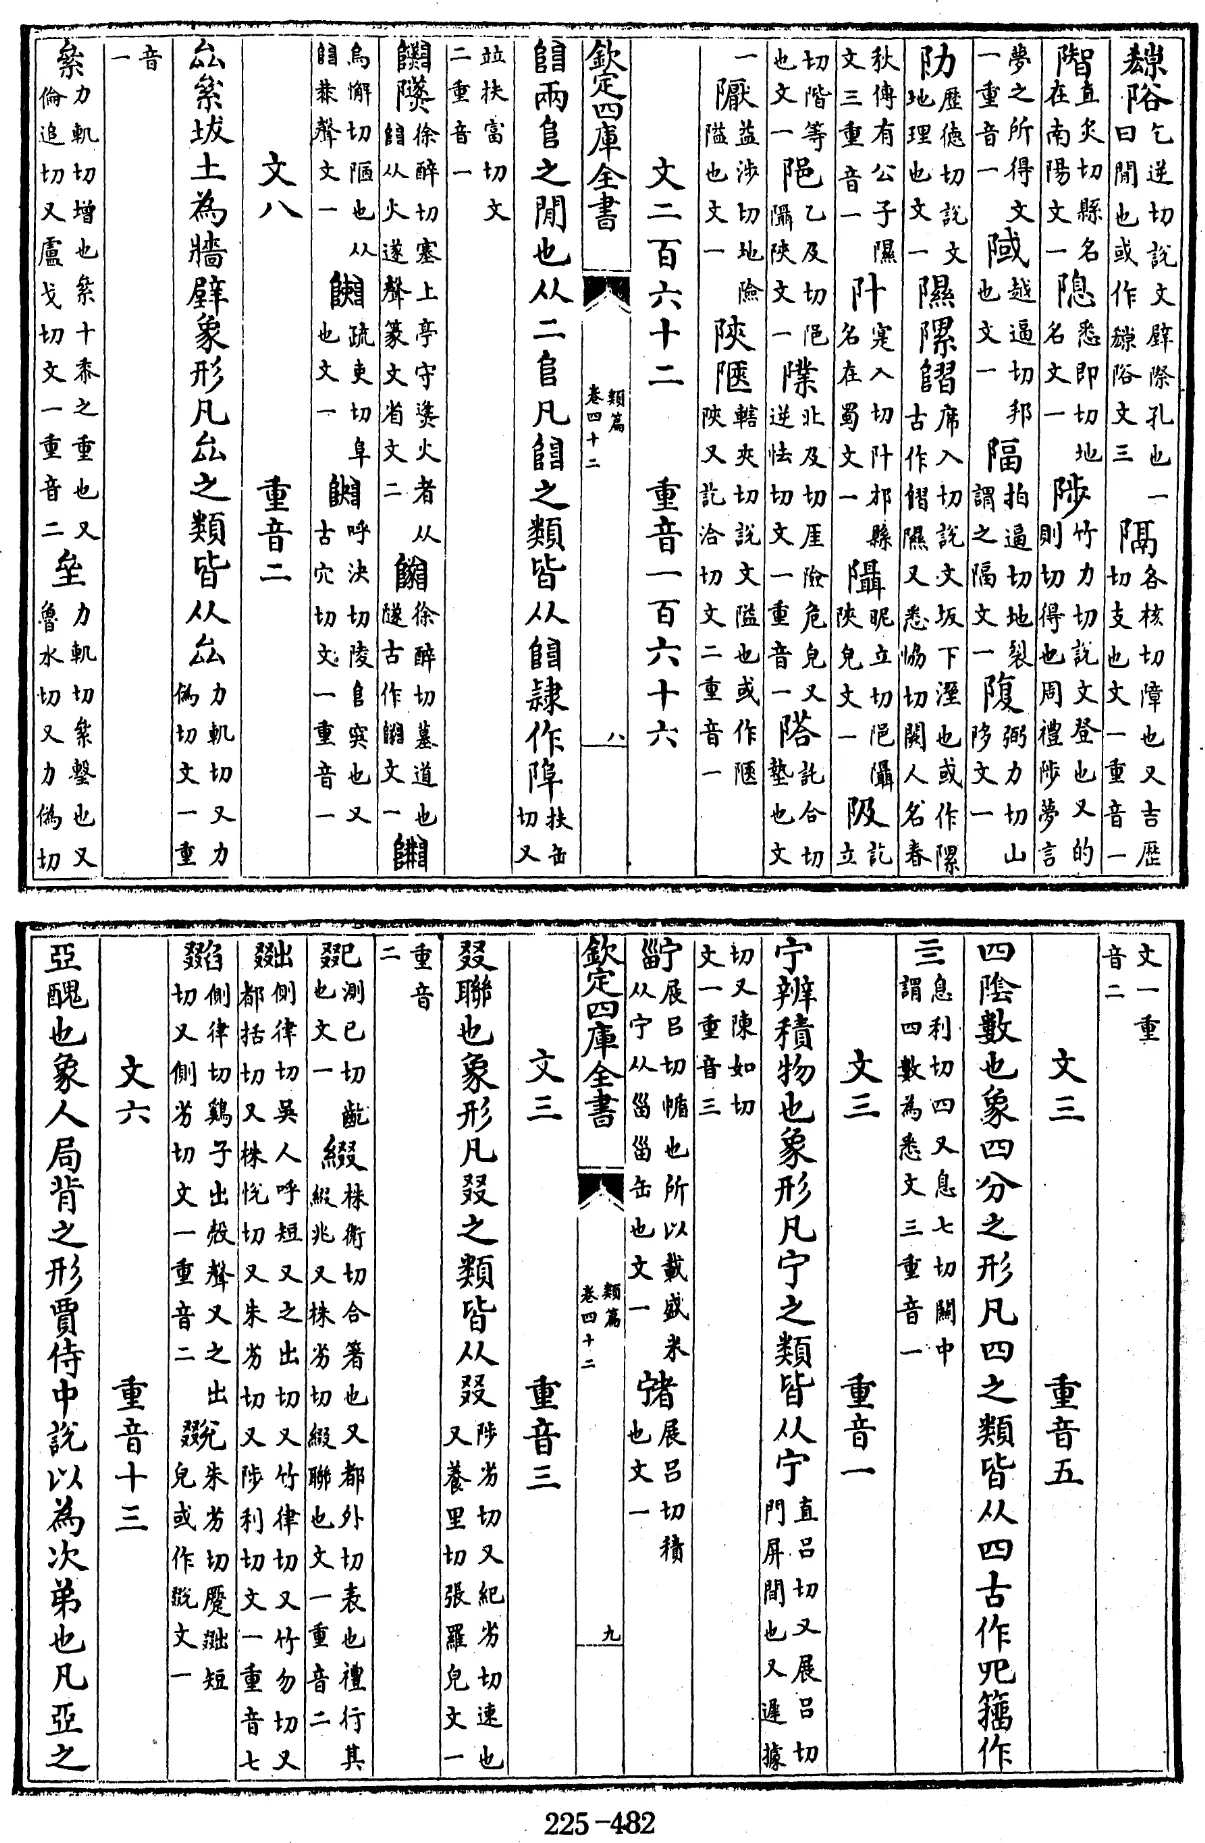 乞逆切說文壁際孔也一曰閒也或作文三 隔各核切障也又吉歷切支也文一重音一
直炙切縣名在南陽文一 悉即切地名文一 陟竹力切說文登也又的則切得也周禮陟夢言
夢之所得文一重音一 越逼切邦也文一 拍逼切地裂謂之文一 弼力切山陊文一
阞歷德切說文地理也文一 隰席入切說文坂下溼也或作古作隰又悉協切闕人名春
秋傳有公子隰文三重音一 寔入切什邡縣名在蜀文一 昵立切陜皃文一 阪訖立
切階等也文一 乙及切陜文一 北及切厓險危皃又逆怯切文一重音一 託合切墊也文
一 益涉切地險隘也文一 陜轄夾切說文隘也或作陜又訖洽切文二重音一
文二百六十二 重音一百六十六
欽定四庫全書 類篇 卷四十二 八
𨺅兩𨸏之閒也从二𨸏凡𨺅之類皆从𨺅隷作䧇扶缶切又
竝扶富切文二重音一
徐醉切塞上亭守㷭火者从𨺅从火遂聲篆文省文二 徐醉切墓道也隧古作文一
烏懈切陋也从𨺅㳟聲文一 疏吏切阜也文一 呼決切陵𨸏突也又古穴切文一重音一
文八 重音二
厽絫坺土為牆壁象形凡厽之類皆从厽力軌切又力偽切文一重
音一
絫力軌切增也絫十黍之重也又倫追切又盧戈切文一重音二 垒力軌切絫墼也又魯水切又力偽切
文一重音二
文三 重音五
四陰數也象四分之形凡四之類皆从四古作籀作
亖息利切四又息七切關中謂四數為悉文三重音一
文三 重音一
宁辨積物也象形凡宁之類皆从宁直呂切又展呂切門屏間也又遲據
切又陳如切文一重音三
展呂切㡒也所以載盛米从宁从甾甾缶也文一 展呂切積也文一
欽定四庫全書 類篇 卷四十二 九
文三 重音三
叕聯也象形凡叕之類皆从叕陟劣切又紀劣切速也又養里切張羅皃文一
重音二
測巳切齔也文一 綴株衛切合著也又都外切表也禮行其綴兆又株劣切綴聯也文一重音二
側律切吳人呼短又之出切又竹律切又竹勿切又都括切又株恱切又朱劣切又陟利切文一重音七
側律切鷄子出殻聲又之出切又側劣切文一重音二 朱劣切䠢短皃或作文一
文六 重音十三
亞醜也象人局背之形賈侍中說以為次弟也凡亞之
225-482